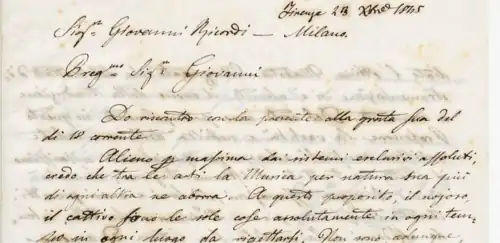 Firenze 23 Xbre 1845
Sigr. Giovanni Ricordi — Milano.
Pregmo Sigr. Giovanni
Do riscontro con la presente alla grata sua del
di 18 corrente.
Alieno per massima dai sistemi esclusivi assoluti,
credo che tra le arti la Musica per natura sua più
di ogni altra ne aborra. A questo proposito, il nojoso,
il cattivo sono le sole cose assolutamente in ogni tem-
po in ogni luogo da rigettarsi. Non sono adunque,